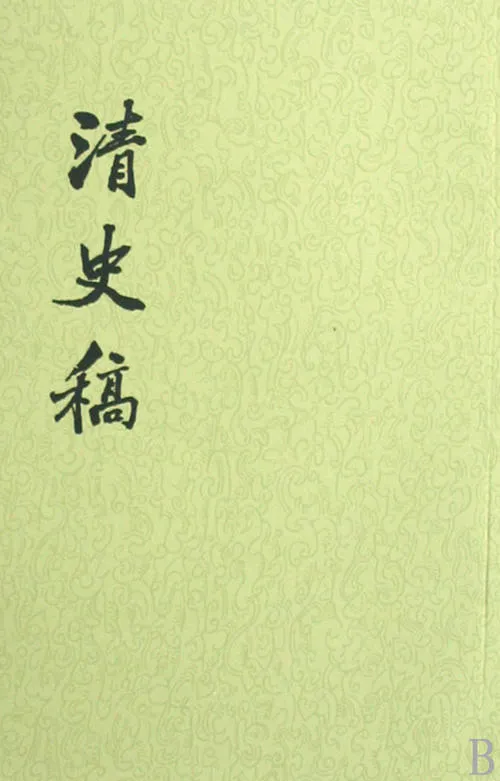 清史稿
B